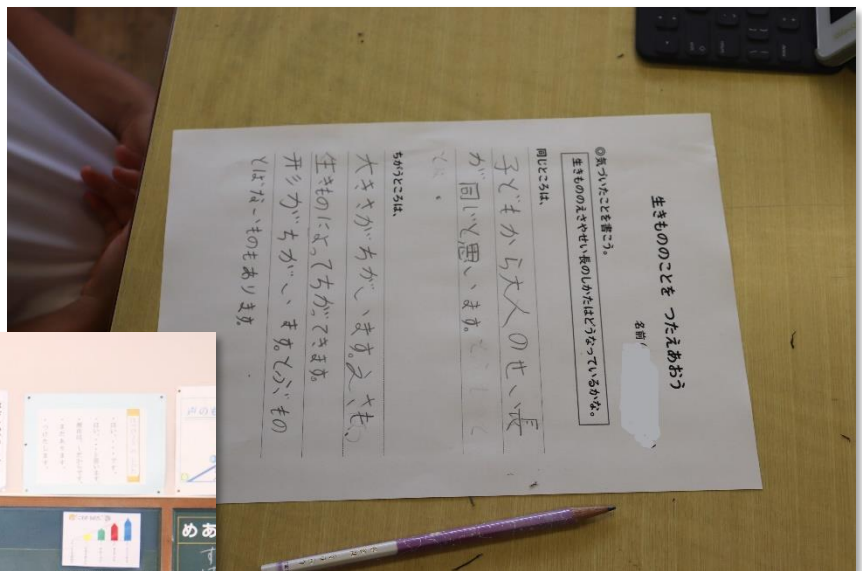 生きもののことを つたえあおう
名前
◎気づいたことを書こう。
生きもののえさやせい長のしかたはどうなっているかな。
同じところは、
子どもから大人のせい長
が同じと思います。
ちがうところは、
大きさがちがいます。えさも、
生きものによってちがってきます。
形がちがいます。とぶもの
とばないものもあります。
めあ